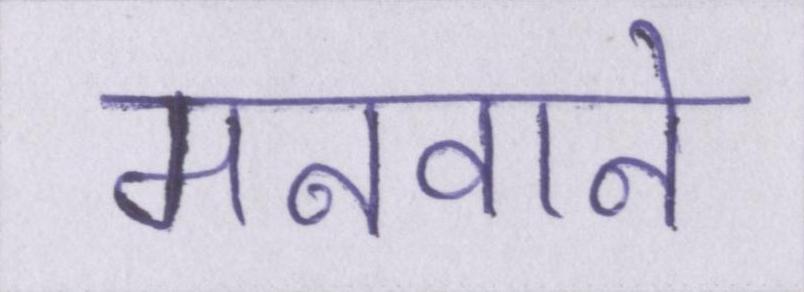 मनवाने